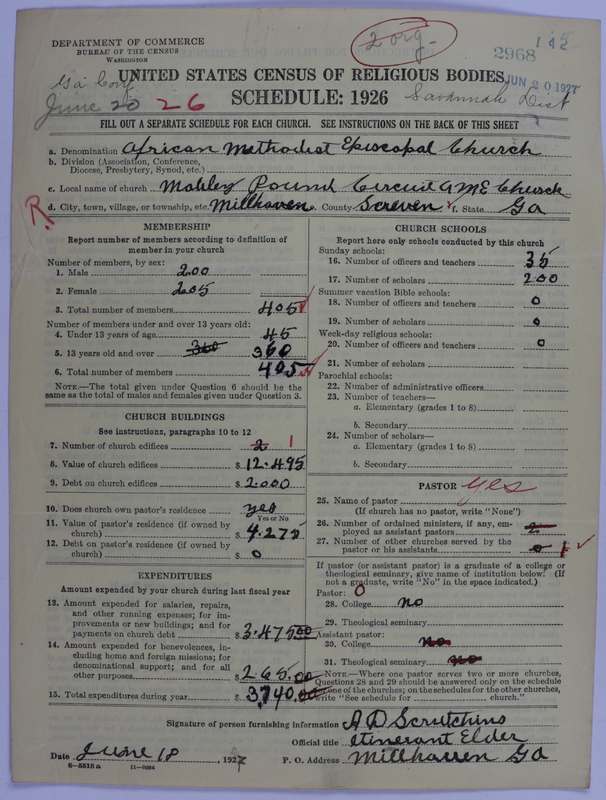 DEPARTMENT OF COMMERCE
BUREAU OF THE CENSUS
WASHINGTON
2 org.
2968
142
JUN 20 1927
UNITED STATES CENSUS OF RELIGIOUS BODIES
Ga Conf
June 20 26
SCHEDULE: 1926
Savannah Dist
FILL OUT A SEPARATE SCHEDULE FOR EACH CHURCH. SEE INSTRUCTIONS ON THE BACK OF THIS SHEET
a. Denomination African Methodist Episcopal Church
b. Division (Association, Conference, Diocese, Presbytery, Synod, etc.)
c. Local name of church Mobley Pound Circuit A M E Church
R
d. City, town, village, or township, etc. Millhaven e. County Screven f. State Ga
MEMBERSHIP
Report number of members according to definition of member in your church
Number of members, by sex:
1. Male 200
2. Female 205
3. Total number of members 405
Number of members under and over 13 years old:
4. Under 13 years of age 45
5. 13 years old and over 360 360
6. Total number of members 405
NOTE.—The total given under Question 6 should be the same as the total of males and females given under Question 3.
CHURCH BUILDINGS
See instructions, paragraphs 10 to 12
7. Number of church edifices 2 1
8. Value of church edifices $ 12.495
9. Debt on church edifices $ 2.000
10. Does church own pastor's residence yes
Yes or No
11. Value of pastor's residence (if owned by church) $ 4.275
12. Debt on pastor's residence (if owned by church) $ 0
EXPENDITURES
Amount expended by your church during last fiscal year
13. Amount expended for salaries, repairs, and other running expenses; for improvements or new buildings; and for payments on church debt $ 3.475 00
14. Amount expended for benevolences, including home and foreign missions; for denominational support; and for all other purposes $ 265.00
15. Total expenditures during year $ 3,740.00
CHURCH SCHOOLS
Report here only schools conducted by this church
Sunday schools:
16. Number of officers and teachers 35
17. Number of scholars 200
Summer vacation Bible schools:
18. Number of officers and teachers 0
19. Number of scholars 0
Week-day religious schools:
20. Number of officers and teachers 0
21. Number of scholars
Parochial schools:
22. Number of administrative officers
23. Number of teachers—
a. Elementary (grades 1 to 8)
b. Secondary
24. Number of scholars—
a. Elementary (grades 1 to 8)
b. Secondary
PASTOR yes
25. Name of pastor
(If church has no pastor, write "None")
26. Number of ordained ministers, if any, employed as assistant pastors 2
27. Number of other churches served by the pastor or his assistants 0 1
If pastor (or assistant pastor) is a graduate of a college or theological seminary, give name of institution below: (If not a graduate, write "No" in the space indicated.)
Pastor: 0
28. College no
29. Theological seminary
Assistant pastor:
30. College no
31. Theological seminary no
NOTE.—Where one pastor serves two or more churches, Questions 28 and 29 should be answered only on the schedule of one of the churches; on the schedules for the other churches, write "See schedule for church."
Signature of person furnishing information A D Scrutchins
Official title Itinerant Elder
Date June 18, 1927
P. O. Address Millhaven Ga
6—5516 a 11—9084